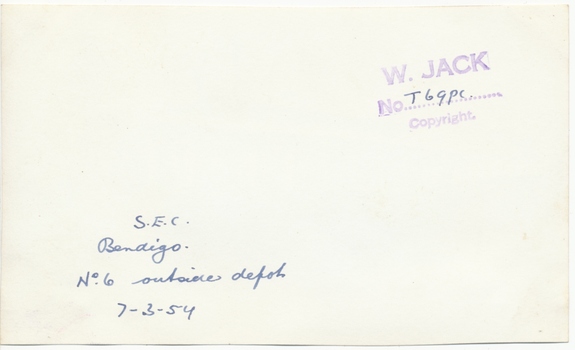 W. JACK
No. T69PC.
Copyright.
S.E.C.
Bendigo.
No. 6 outside depot
7-3-54